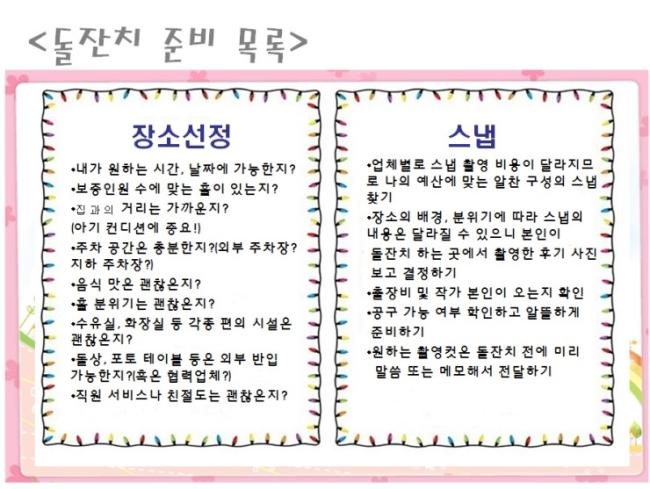 <돌잔치 준비 목록>
장소선정
•내가 원하는 시간, 날짜에 가능한지?
•보증인원 수에 맞는 홀이 있는지?
•집과의 거리는 가까운지?
(아기 컨디션에 중요!)
•주차 공간은 충분한지?(외부 주차장?
지하 주차장?)
•음식 맛은 괜찮은지?
•홀 분위기는 괜찮은지?
•수유실, 화장실 등 각종 편의 시설은
괜찮은지?
•돌상, 포토 테이블 등은 외부 반입
가능한지?(혹은 협력업체?)
•직원 서비스나 친절도는 괜찮은지?
스냅
•업체별로 스냅 촬영 비용이 달라지므
로 나의 예산에 맞는 알찬 구성의 스냅
찾기
•장소의 배경, 분위기에 따라 스냅의
내용은 달라질 수 있으니 본인이
돌잔치 하는 곳에서 촬영한 후기 사진
보고 결정하기
•출장비 및 작가 본인이 오는지 확인
•공구 가능 여부 확인하고 알뜰하게
준비하기
•원하는 촬영컷은 돌잔치 전에 미리
말씀 또는 메모해서 전달하기